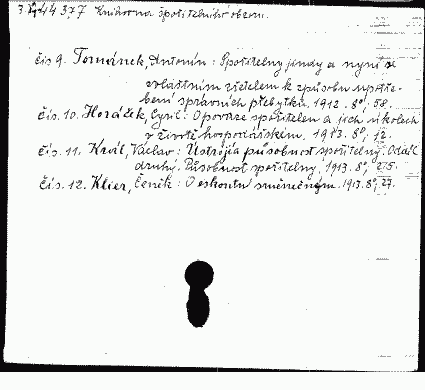 3. J 44.377 Knihovna spořitelního oboru.
čís 9. Tománek, Antonín: Spořitelny jindy a nyní se
zvláštním zřetelem k způsobu upotře-
bení správních přebytků. 1912. 8°, 58.
čís. 10. Horáček, Cyril: O povaze spořitelen a jich úkolech
v životě hospodářském. 1913. 8°, 12.
čís. 11. Král, Václav: Ústrojí a působnost spořitelny. Oddíl
druhý. Působnost spořitelny. 1913. 8°, 25.
čís. 12. Klier, Čeněk: O eskontu směnečném. 1913. 8°, 27.